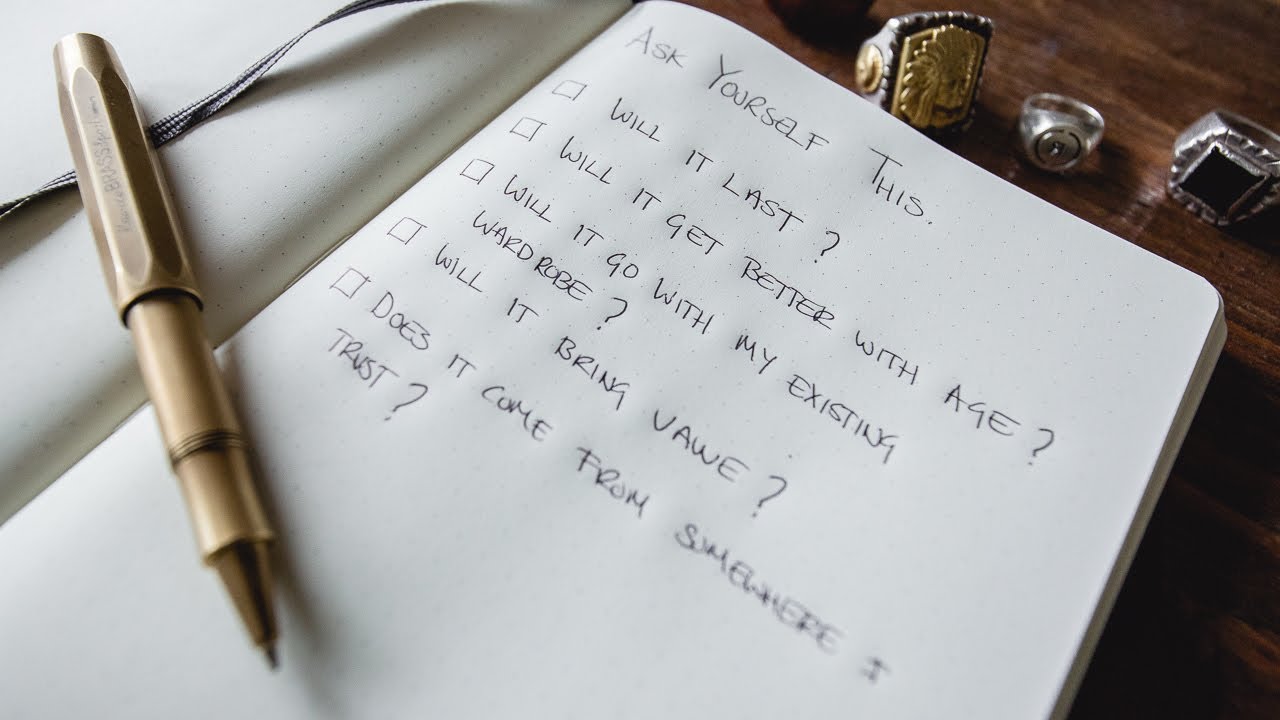 Ask Yourself This.
Will it last?
Will it get better with age?
Will it go with my existing
wardrobe?
Will it bring value?
Does it come from somewhere I
trust?
BRASS